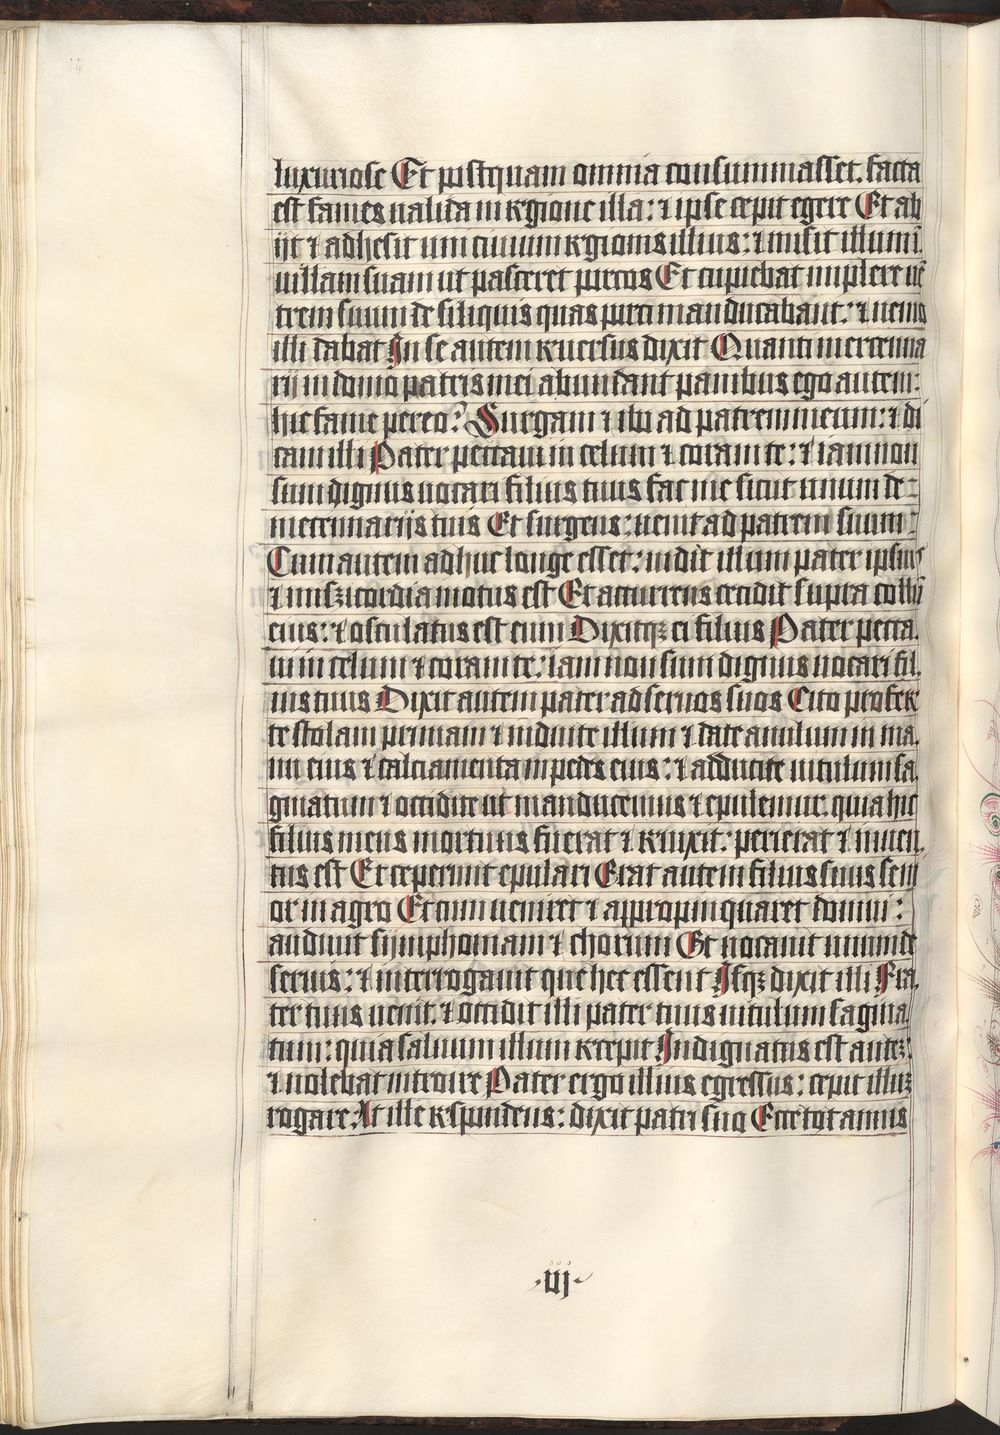 luxuriose Et postquam omnia consummasset. facta
est fames valida in regione illa: ⁊ ipse cepit egere Et ab
ijt ⁊ adhesit uni civium regionis illius: ⁊ misit illum ī
villam suam ut pasceret porcos Et cupiebat implere vē
trem suum de siliquis quas porci manducabant: ⁊ nemo
illi dabat In se autem reversus dixit Quanti mercenna
rij in domo patris mei abundant panibus ego autem:
hic fame pereo? Surgam ⁊ ibo ad patrem meum: ⁊ di
cam illi Pater peccavi in celum ⁊ coram te: ⁊ iam non
sum dignus vocari filius tuus fac me sicut unum de
mercennarijs tuis Et surgens: venit ad patrem suum:
Cum autem adhuc longe esset: vidit illum pater ipsius
⁊ misericordia motus est Et accurrens cecidit supra collū
eius: ⁊ osculatus est eum Dixitqꝫ ei filius Pater pecca
vi in celum ⁊ coram te: iam non sum dignus vocari fil
ius tuus Dixit autem pater ad servos suos Cito profer
te stolam primam ⁊ induite illum ⁊ date anulum in ma
nu eius ⁊ calciamenta in pedes eius: ⁊ adducite vitulum sa
ginatum ⁊ occidite ut manducemus ⁊ epulemur. quia hic
filius meus mortuus fuerat ⁊ revixit: perierat ⁊ inven
tus est Et ceperunt epulari Erat autem filius suus seni
or in agro Et cum veniret ⁊ appropinquaret domui:
audivit symphoniam ⁊ chorum Et vocavit unum de
servis: ⁊ interrogavit que hec essent Isqꝫ dixit illi Fra
ter tuus venit. ⁊ occidit illi pater tuus vitulum sagina
tum: quia salvum illum recepit Indignatus est auteꝫ:
⁊ nolebat introire Pater ergo illius egressus: cepit illuꝫ
rogare. At ille respondens: dixit patri suo Ecce tot annis
·iij·